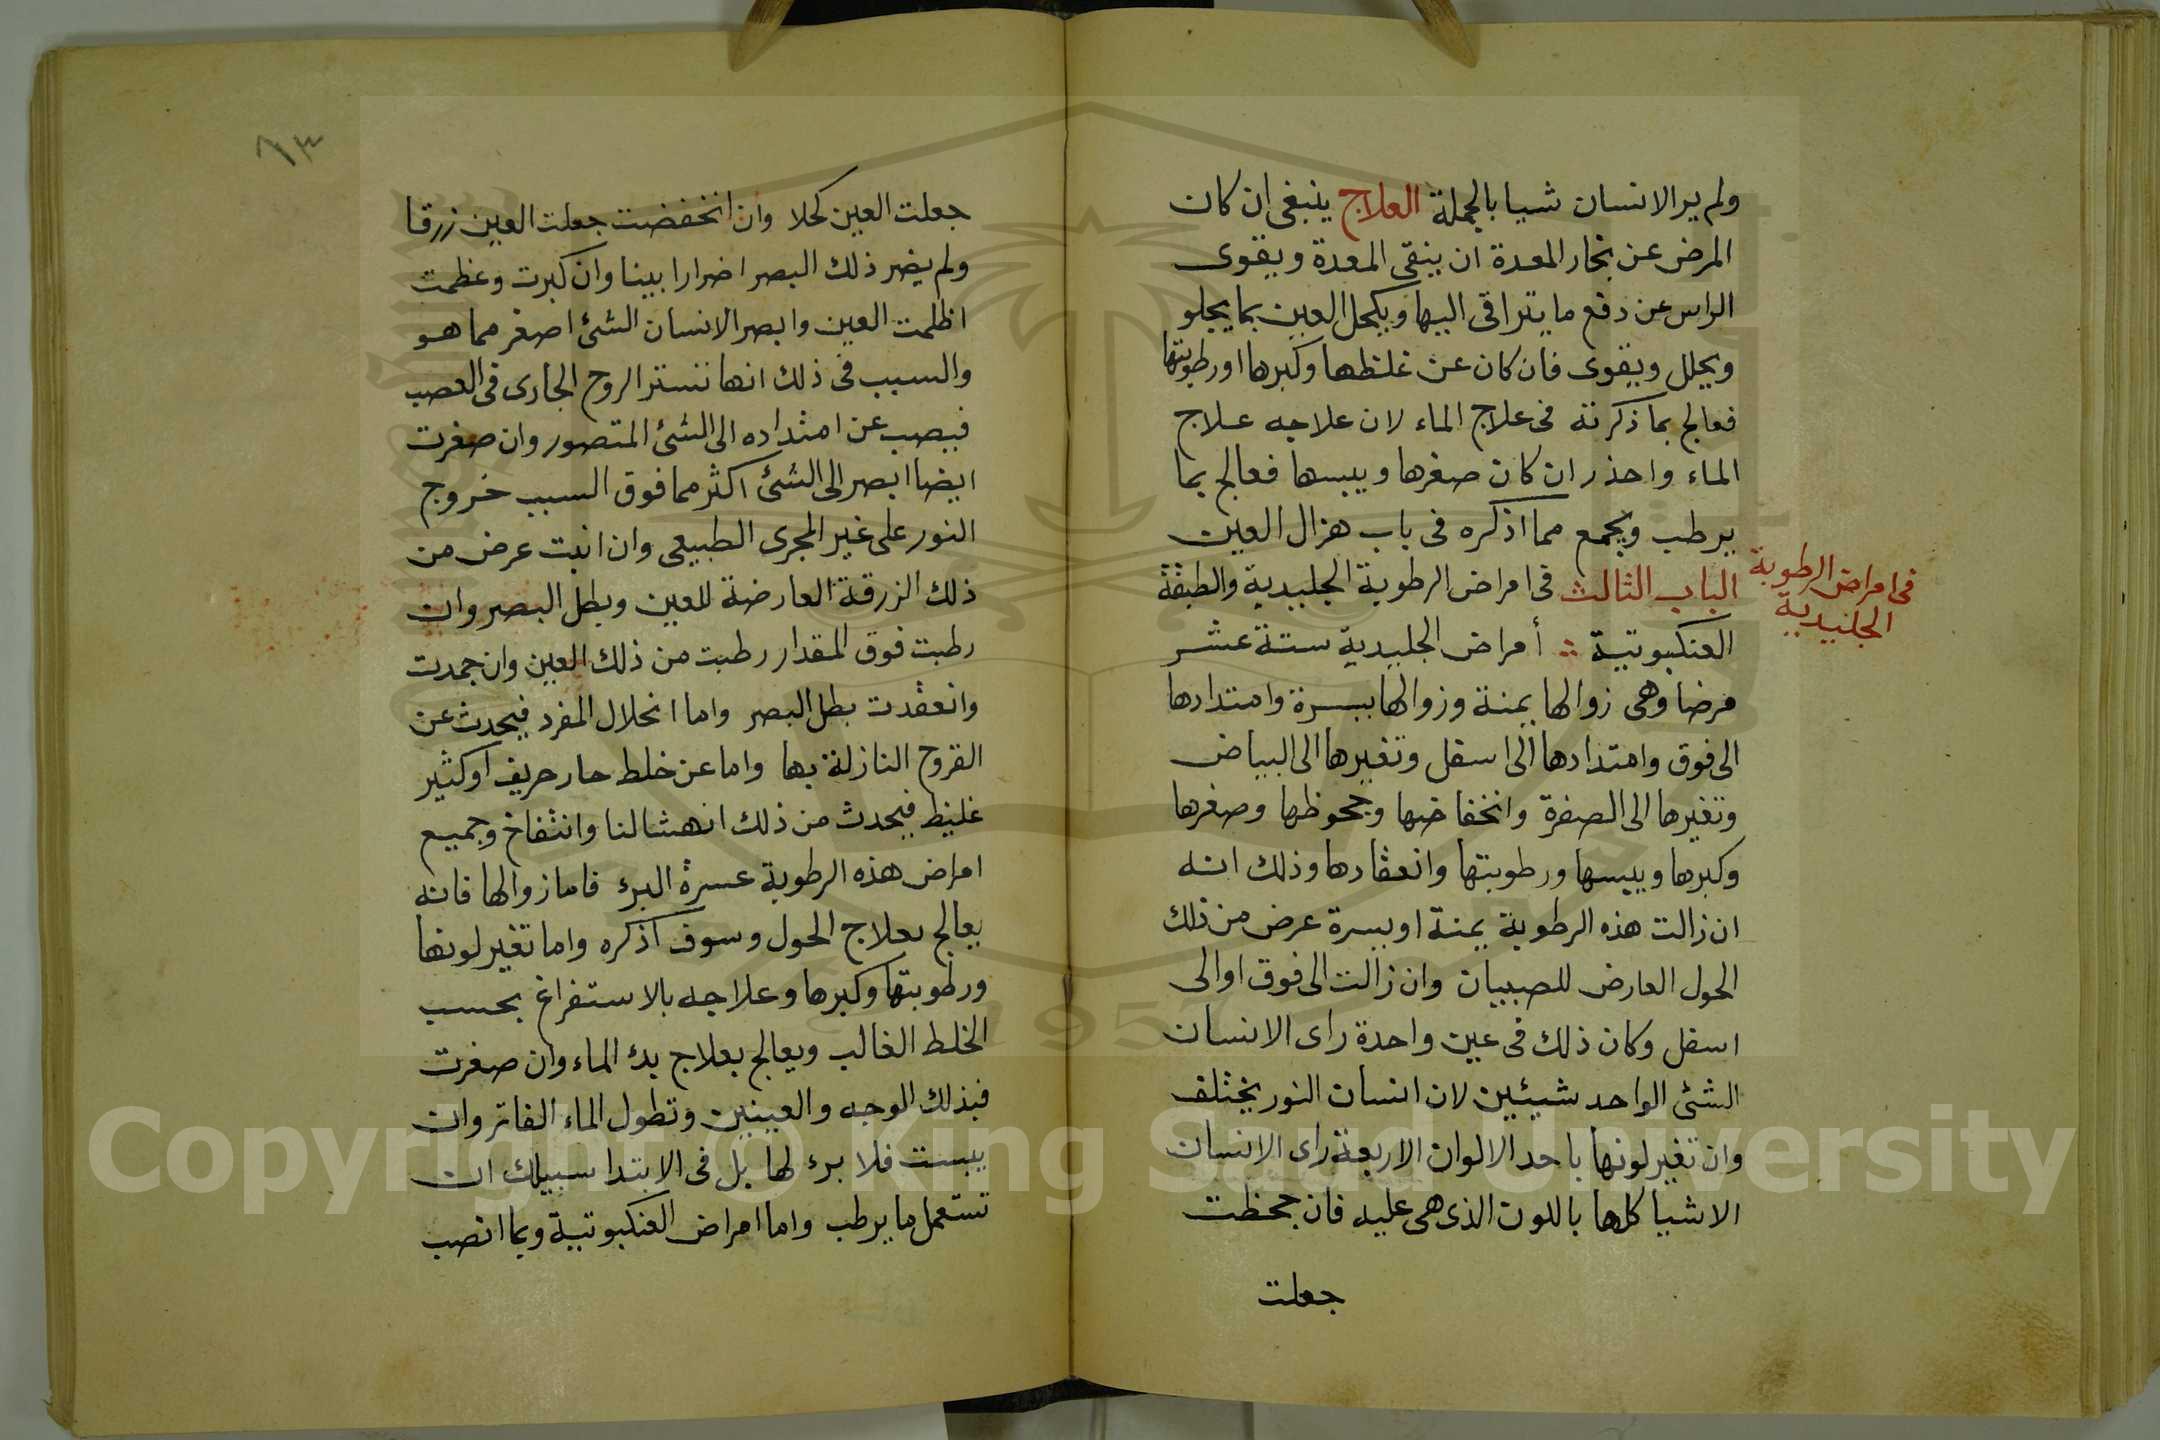 ولم ير الانسان شيا بالجملة العلاج ينبغى ان كان
المرض عن بخار المعدة ان ينقى المعدة ويقوى
الراس عن دفع ما يتراقى اليها ويكحل العين بما يجلو
ويحلل ويقوى فان كان عن غلظها وكبرها او رطوبتها
فعالج بما ذكرته فى علاج الماء لان علاجه علاج
الماء واحذر ان كان صغرها ويبسها فعالج بما
يرطب ويجمع مما اذكره فى باب هزال العين
الباب الثالث فى امراض الرطوبة الجليدية والطبقة
فى امراض الرطوبة
الجليدية
العنكبوتية أمراض الجليدية ستة عشر
مرضا وهى زوالها يمنة وزوالها يسرة وامتدادها
الى فوق وامتدادها الى اسفل وتغيرها الى البياض
وتغيرها الى الصفرة وانخفاضها وجحوظها وصغرها
وكبرها ويبسها ورطوبتها وانعقادها وذلك انه
ان زالت هذه الرطوبة يمنة او يسرة عرض من ذلك
الحول العارض للصبيان وان زالت الى فوق او الى
اسفل وكان ذلك فى عين واحدة راى الانسان
الشئ الواحد شيئين لان انسان النور يختلف
وان تغير لونها باحد الالوان الاربعة راى الانسان
الاشيا كلها باللون الذى هى عليه فان جحظت
جعلت
٦٣
جعلت العين كحلا وان انخفضت جعلت العين زرقا
ولم يضر ذلك البصر اضرارا بينا وان كبرت وعظمت
اظلمت العين وابصر الانسان الشئ اصغر مما هو
والسبب فى ذلك انها تستر الروح الجارى فى العصب
فيصب عن امتداده الى الشئ المتصور وان صغرت
ايضا ابصر الى الشئ اكثر مما فوق السبب خروج
النور على غير المجرى الطبيعى وان عرض من
ذلك الزرقة العارضة للعين وبطل البصر وان
رطبت فوق المقدار رطبت من ذلك العين وان جمدت
وانعقدت بطل البصر واما انحلال المفرد فيحدث عن
القروح النازلة بها واما عن خلط حار حريف او كثير
غليظ فيحدث من ذلك وانتفاخ وجميع
امراض هذه الرطوبة عسرة البرء فاما زوالها فانه
يعالج بعلاج الحول وسوف اذكره واما تغير لونها
ورطوبتها وكبرها وعلاجه بالاستفراغ بحسب
الخلط الغالب ويعالج بعلاج بدء الماء وان صغرت
فبذلك الوجه والعينين وتطول الماء الفاتر وان
يبست فلا برء لها بل فى الابتدا سبيلك ان
تستعمل ما يرطب واما امراض العنكبوتية وبما انصب
Copyright © King Saud University
1957